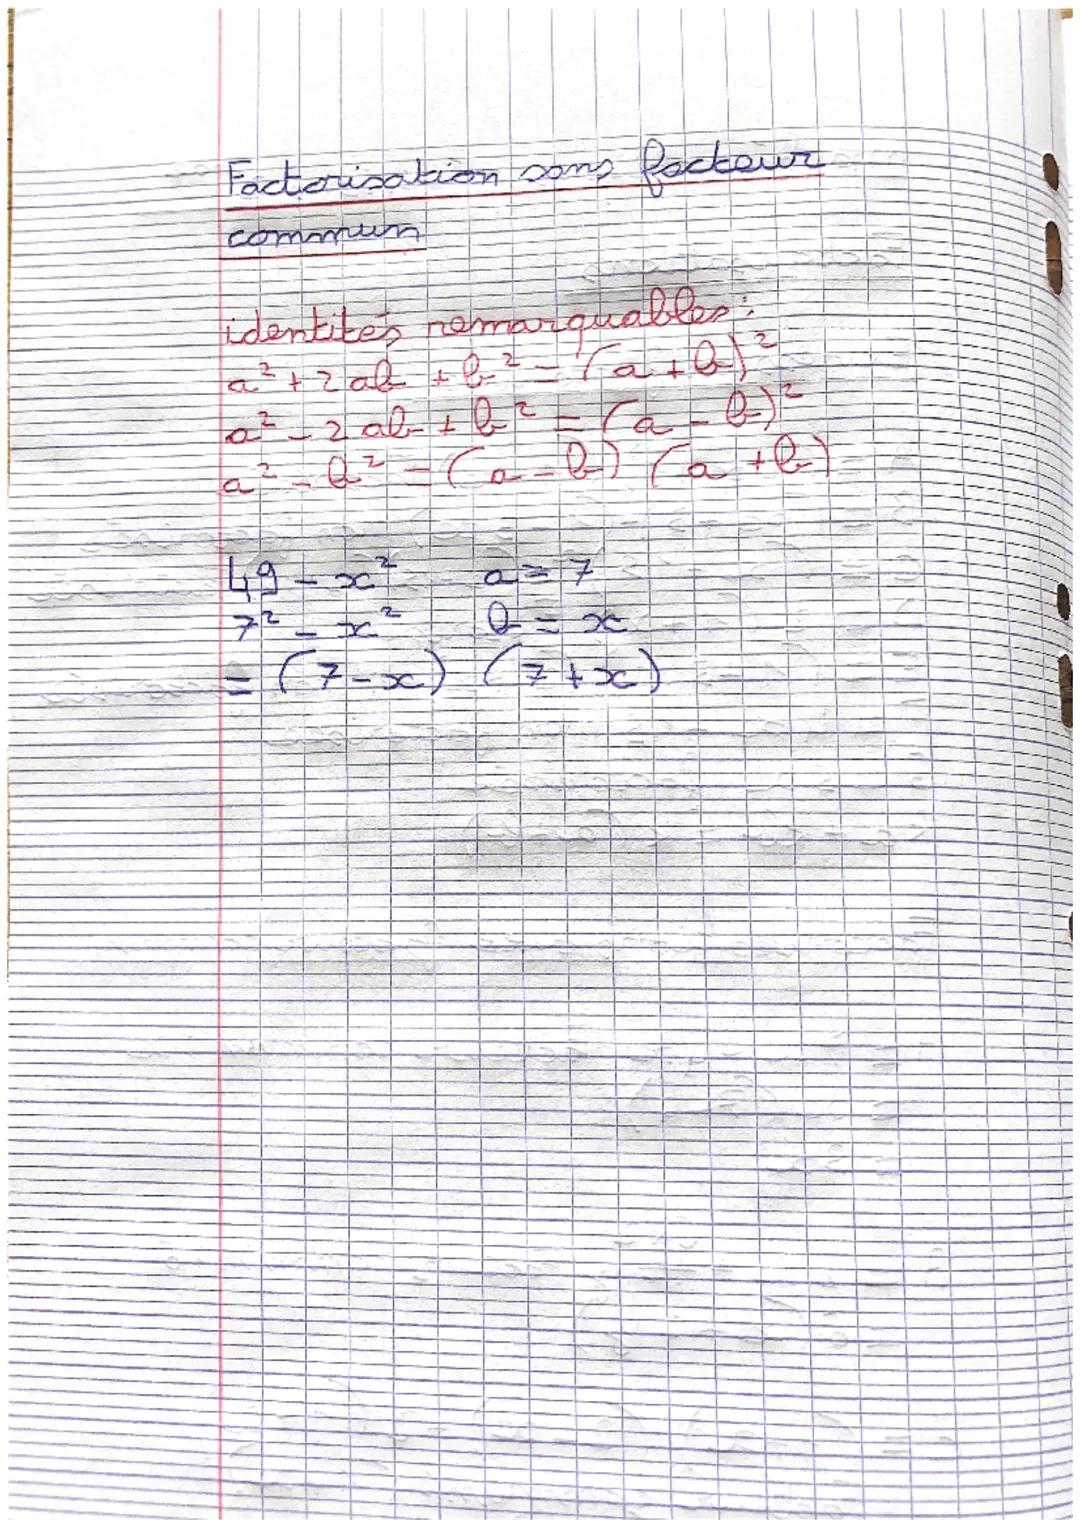 Factorisation sans facteur
commun
identités remarquables :
a² + 2ab + b² = (a + b)²
a² - 2ab + b² = (a - b)²
a² - b² = (a - b) (a + b)
49 - x² a = 7
7² - x² b = x
= (7 - x) (7 + x)